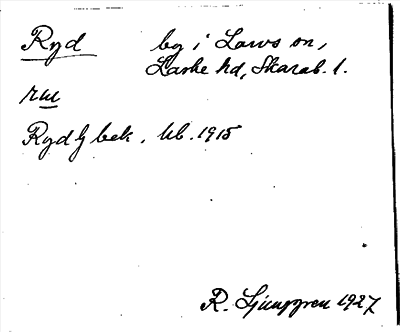 Ryd by i Lavs sn,
Laske hd, Skarab. l.
ru
Ryd G bek. Ub. 1915
R. Ljunggren 1927